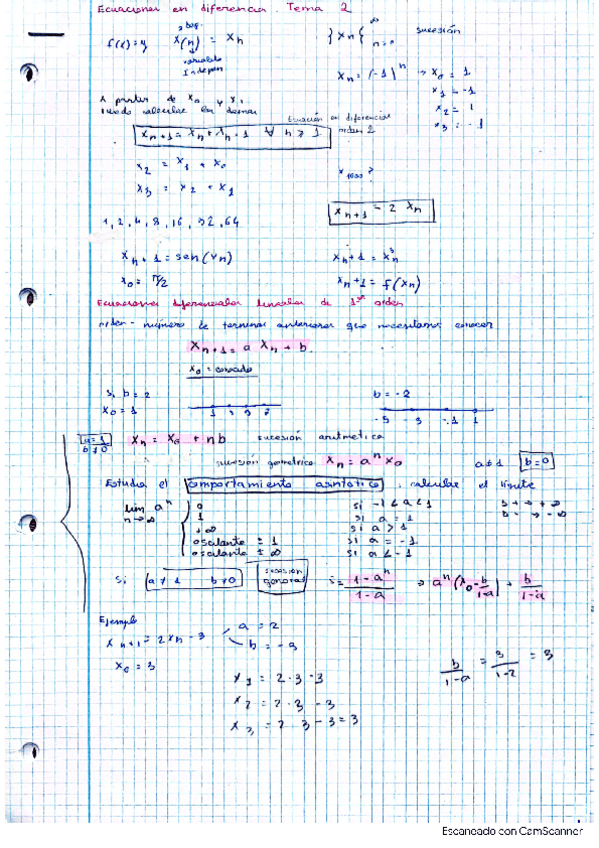 Ecuaciones en diferencia. Tema 2
f(x) = y x(n) = xn { xn { ∞ n=0 sucesión
variable
Indepen
xn = (-1)^n → x0 = 1
x1 = -1
x2 = 1
x3 = -1
A partir de x0 y x1
puedo calcular los demás
Ecuación en diferencias
orden 2
xn+1 = xn + xn-1 ∀ n ≥ 1
x2 = x1 + x0
x3 = x2 + x1
x1000?
xn+1 = 2 xn
1, 2, 4, 8, 16, 32, 64
xn+1 = sen(xn) xn+1 = xn^3
x0 = π/2 xn+1 = f(xn)
Ecuaciones diferenciales lineales de 1er orden
orden - número de terminos anteriores que necesitamos conocer
xn+1 = a xn + b
x0 = conocido
Si b = 2 b = -2
x0 = 1
1 3 5 7 -5 -3 -1 1
a = 1
b ≠ 0
xn = x0 + nb sucesión aritmetica
sucesión geometrica xn = a^n x0 a ≠ 1 b = 0
Estudia el comportamiento asintótico, calcular el límite
lim a^n n→∞ { 0 si -1 < a < 1
1 si a = 1
+∞ si a > 1
oscilante ± 1 si a = -1
oscilante ± ∞ si a < -1
b + → + ∞
b - → - ∞
Si a ≠ 1 b ≠ 0 sucesión general 1-a^n / 1-a → a^n (x0 - b/1-a) + b/1-a
Ejemplo
xn+1 = 2xn - 3 a = 2
b = -3
x0 = 3
b/1-a = 3/1-2 = 3
x1 = 2·3 - 3
x2 = 2·3 - 3
x3 = 2·3 - 3 = 3
Escaneado con CamScanner